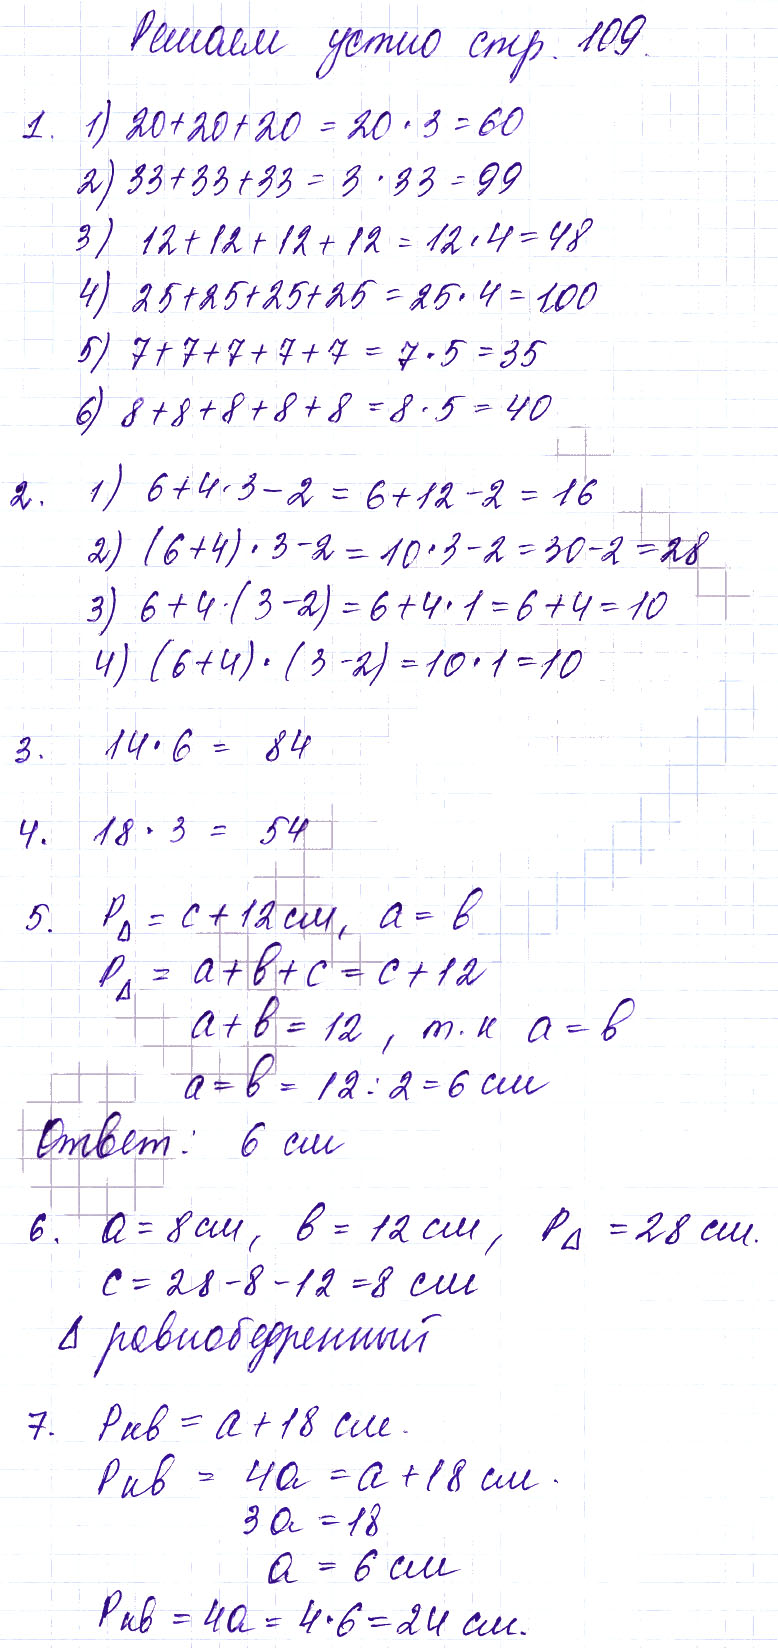 Решаем устно стр. 109.
1. 1) 20+20+20 = 20·3=60
2) 33+33+33 = 3·33=99
3) 12+12+12+12 = 12·4=48
4) 25+25+25+25 = 25·4=100
5) 7+7+7+7+7 = 7·5=35
6) 8+8+8+8+8 = 8·5=40
2. 1) 6+4·3-2 = 6+12-2 = 16
2) (6+4)·3-2 = 10·3-2=30-2=28
3) 6+4·(3-2)=6+4·1=6+4=10
4) (6+4)·(3-2)=10·1=10
3. 14·6 = 84
4. 18·3 = 54
5. PΔ = c+12см, a = b
PΔ = a+b+c = c+12
a+b = 12, т.к a = b
a=b = 12:2=6 см
Ответ: 6 см
6. a=8см, b=12см, PΔ =28 см.
c=28-8-12=8 см
Δ равнобедренный
7. Pкв = a+18 см.
Pкв = 4a = a+18 см.
3a =18
a = 6 см
Pкв = 4a = 4·6=24 см.